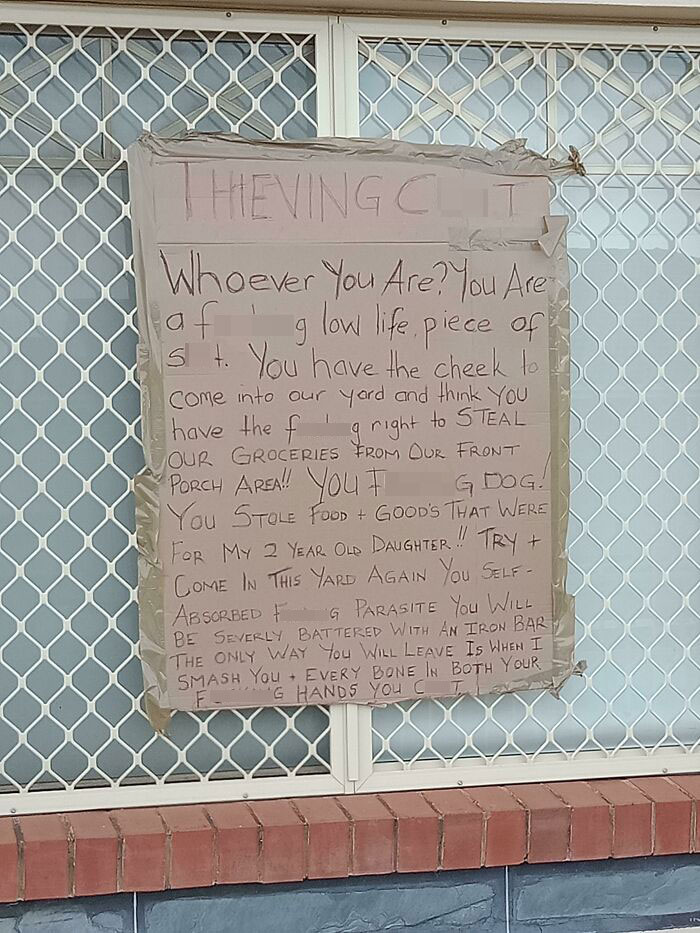 THIEVING C T
Whoever You Are? You Are
a f g low life, piece of
s t. You have the cheek to
come into our yard and think YOU
have the f g right to STEAL
OUR GROCERIES FROM OUR FRONT
PORCH AREA!! YOU F G DOG!
YOU STOLE FOOD + GOOD'S THAT WERE
FOR MY 2 YEAR OLD DAUGHTER!! TRY +
COME IN THIS YARD AGAIN YOU SELF-
ABSORBED F G PARASITE YOU WILL
BE SEVERLY BATTERED WITH AN IRON BAR
THE ONLY WAY YOU WILL LEAVE IS WHEN I
SMASH YOU + EVERY BONE IN BOTH YOUR
F 'G HANDS YOU C T